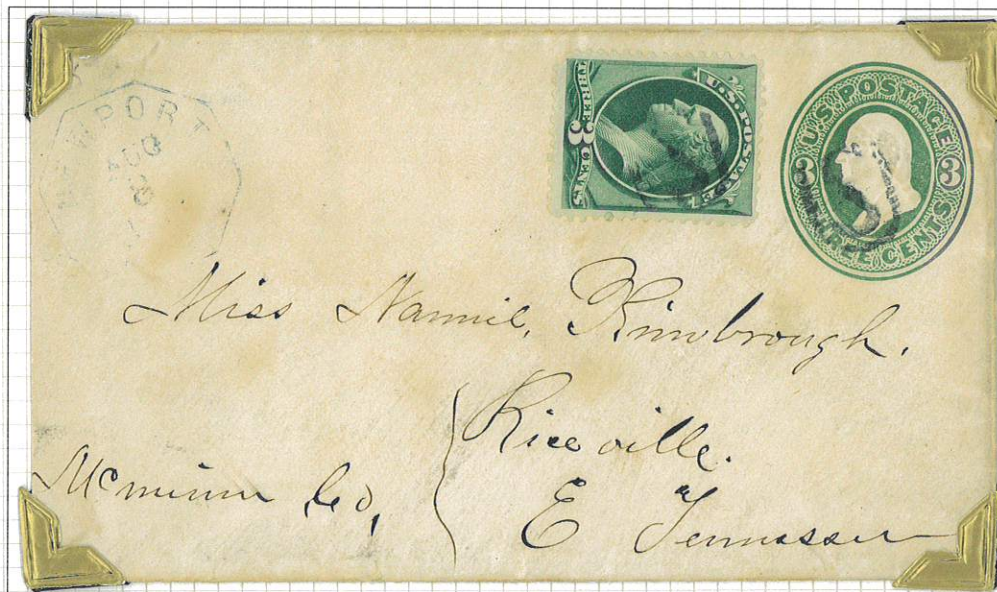 NEWPORT
AUG
8
U.S. POSTAGE
3
CENTS
U.S. POSTAGE
3 3
THREE CENTS
Miss Nannie, Kimbrough.
Riceville.
McMinn Co,
E Tennessee